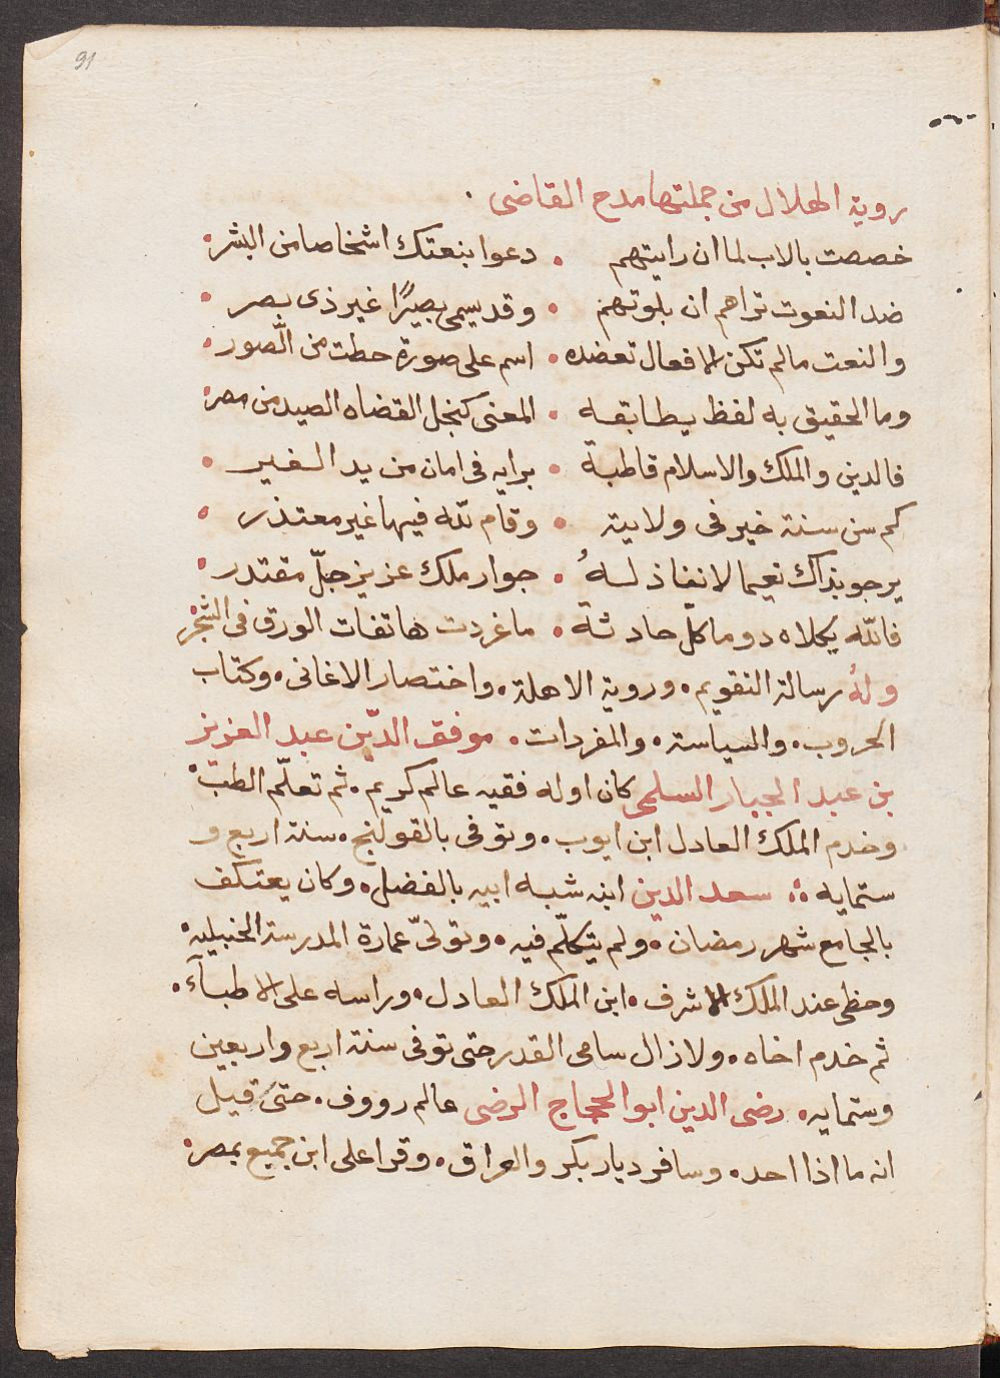 91
روية الهلال من جملتها مدح القاضى
خصصت بالاب لما ان رايتهم . دعوا بنعتك اشخاصا من البشر.
ضد النعوت تراهم ان بلوتهم . وقد يسمى بصيرًا غير ذى بصر .
والنعت مالم تكن الافعال تعضده . اسم على صورة حطت من الصّور .
وما الحقيق به لفظ يطابقه . المعنى كنجل القضاه الصيد من مصر.
فالدين والملك والاسلام قاطبة . برايه فى امان من يد الغير .
كم سن سنة خير فى ولايته . وقام للّه فيها غير معتذر .
يرجو بذاك نعيما لا نفاذ لهُ . جوار ملك عزيز جلّ مقتدر .
فاللّه يكلاه دوما كلّ حادثة . ما غردت هاتفات الورق فى الشجر
ولهُ رسالة التقويم . وروية الاهلة . واختصار الاغانى . وكتاب
الحروب . والسياسة . والمفردات . موفق الدّين عبد العزيز
بن عبد الجبار السلمى كان اوله فقيه عالم كريم . ثم تعلّم الطب .
وخدم الملك العادل ابن ايوب . وتوفى بالقولنج . سنة اربع و
ستمايه .. سعد الدين ابنه شبه ابيه بالفضل . وكان يعتكف
بالجامع شهر رمضان . ولم يتكلّم فيه . وتولىّ عمارة المدرسة الحنبليه .
وحظى عند الملك الاشرف . ابن الملك العادل . وراسه على الاطبآء .
ثم خدم اخاه . ولا زال سامى القدر حتى توفى سنة اربع واربعين
وستمايه . رضى الدين ابو الحجاج الرضى عالم رووف . حتىّ قيل
انه ما اذا احد . وسافر ديار بكر والعراق . وقرا على ابن جميع بمصر .